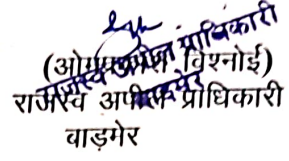 (ओमप्रकाश विश्नोई)
राजस्व अपील प्राधिकारी
वाड़मेर
राजस्व अपील प्राधिकारी
बाड़मेर